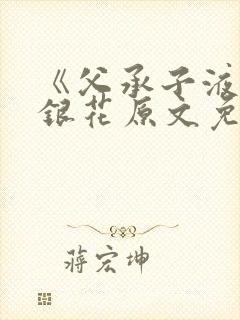 《父承子液
銀花原文免
蔣宏坤